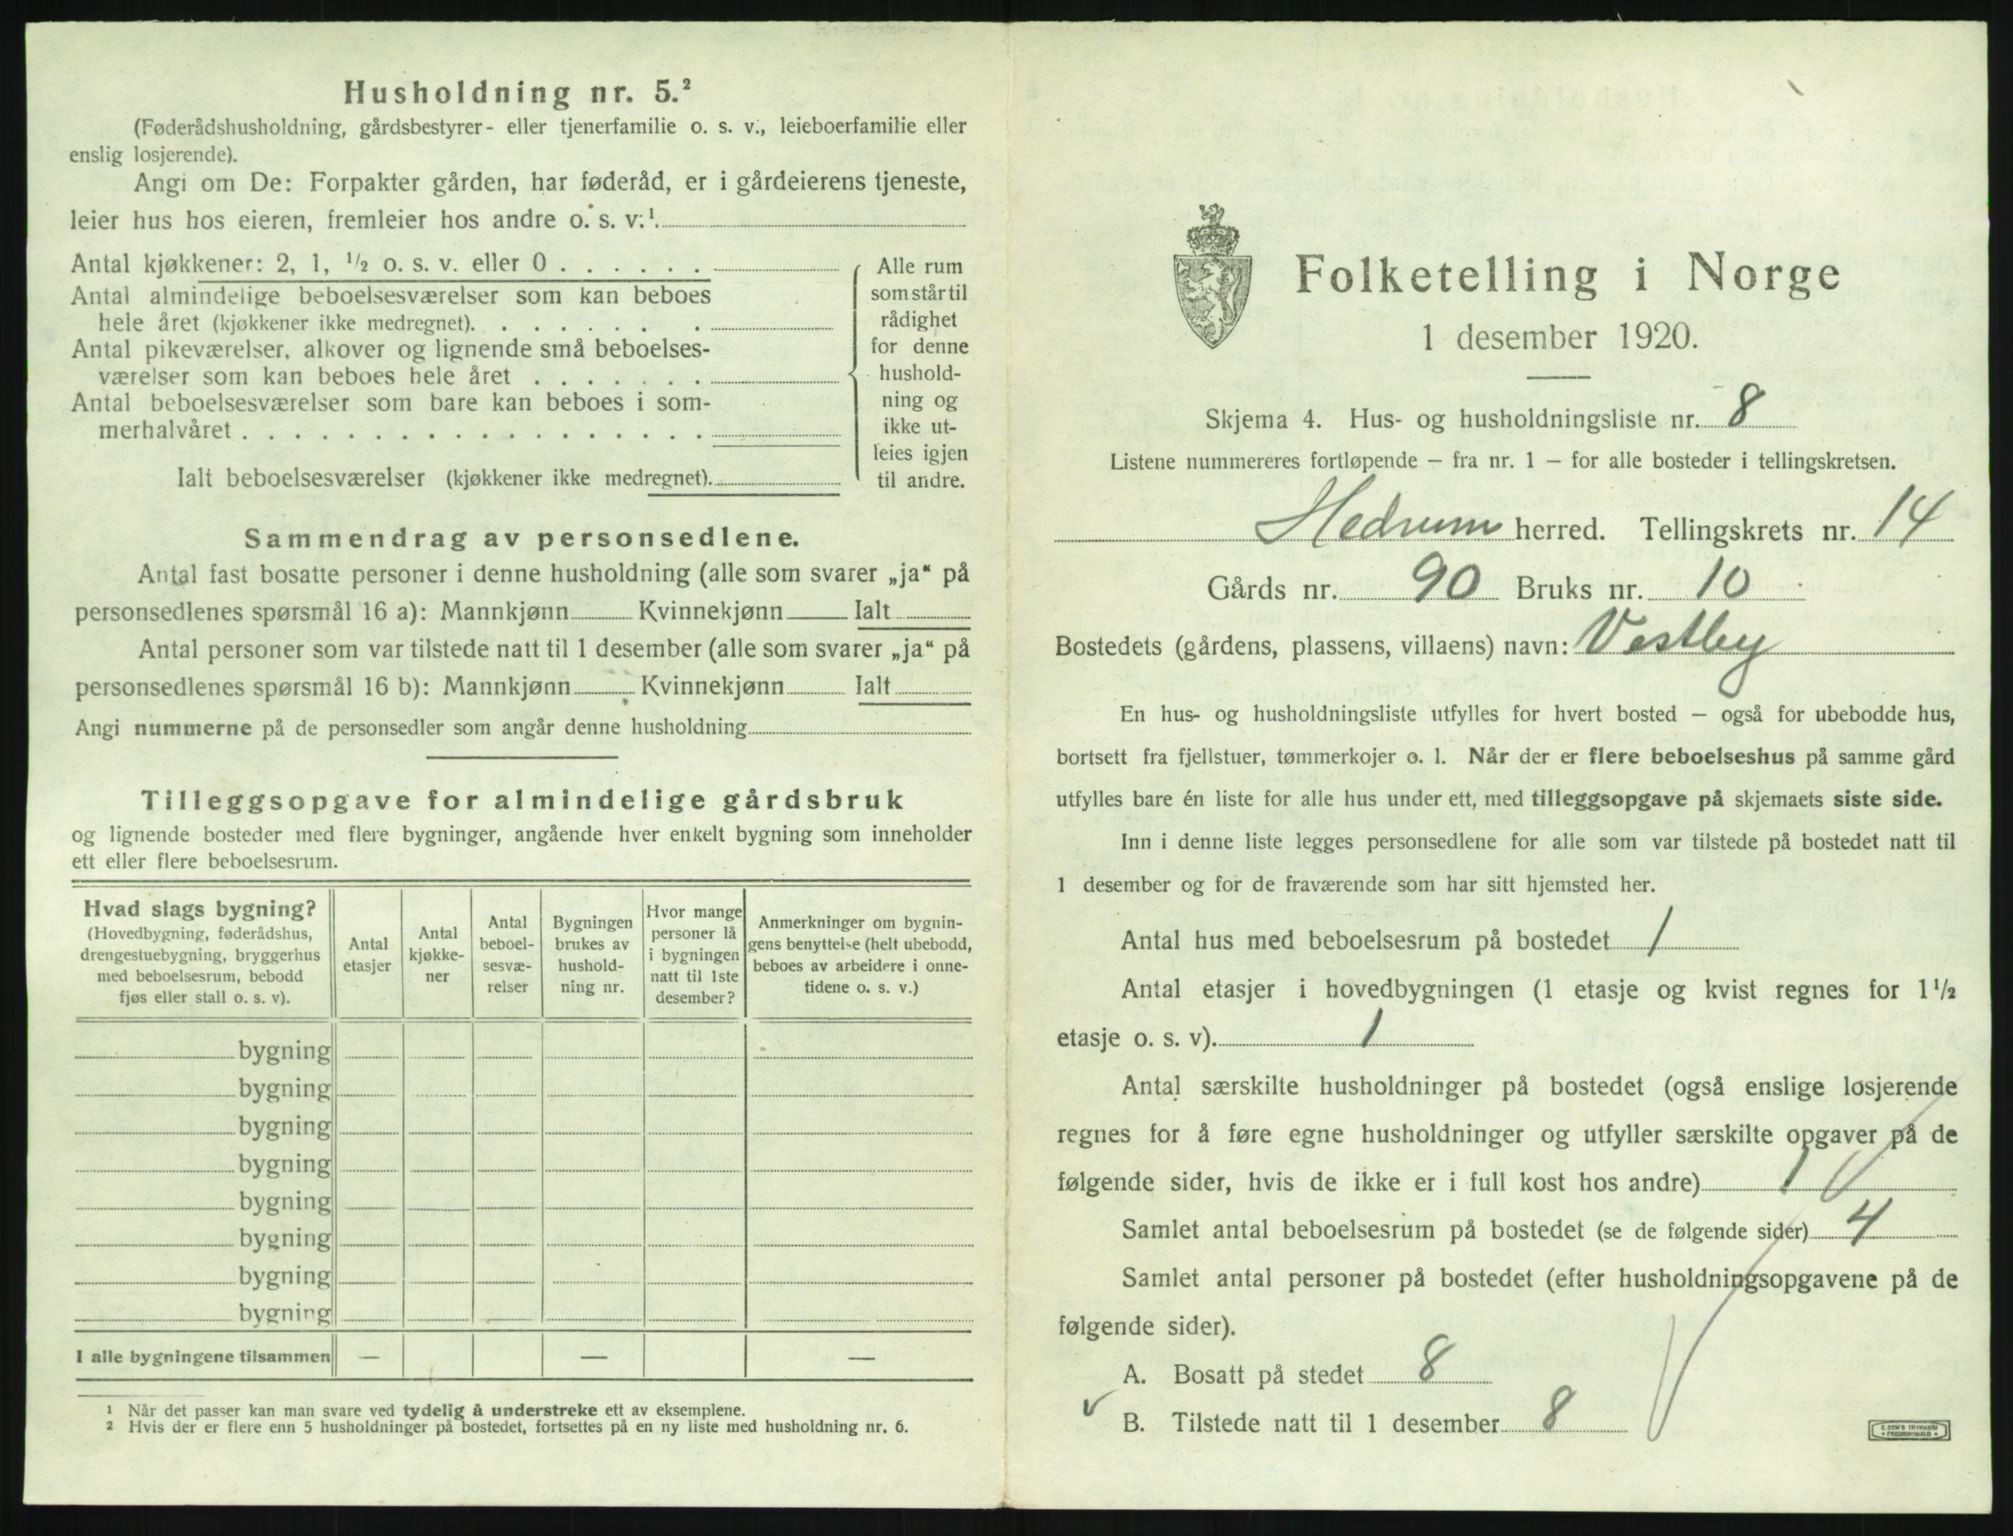 Husholdning nr. 5.²
(Føderådshusholdning, gårdsbestyrer- eller tjenerfamilie o. s. v., leieboerfamilie eller
enslig losjerende).
Angi om De: Forpakter gården, har føderåd, er i gårdeierens tjeneste,
leier hus hos eieren, fremleier hos andre o. s. v.¹.
Antal kjøkkener: 2, 1, ½ o. s. v. eller 0 . . . . . .
Antal almindelige beboelsesværelser som kan beboes
hele året (kjøkkener ikke medregnet). . . . . . .
Antal pikeværelser, alkover og lignende små beboelses-
værelser som kan beboes hele året . . . . . . .
Antal beboelsesværelser som bare kan beboes i som-
merhalvåret . . . . . . . . . . . . . . . . . .
Ialt beboelsesværelser (kjøkkener ikke medregnet).
Alle rum
som står til
rådighet
for denne
hushold-
ning og
ikke ut-
leies igjen
til andre.
Sammendrag av personsedlene.
Antal fast bosatte personer i denne husholdning (alle som svarer „ja“ på
personsedlenes spørsmål 16 a): Mannkjønn Kvinnekjønn Ialt
Antal personer som var tilstede natt til 1 desember (alle som svarer „ja“ på
personsedlenes spørsmål 16 b): Mannkjønn Kvinnekjønn Ialt
Angi nummerne på de personsedler som angår denne husholdning
Tilleggsopgave for almindelige gårdsbruk
og lignende bosteder med flere bygninger, angående hver enkelt bygning som inneholder
ett eller flere beboelsesrum.
Hvad slags bygning?
(Hovedbygning, føderådshus,
drengestuebygning, bryggerhus
med beboelsesrum, bebodd
fjøs eller stall o. s. v).
Antal
etasjer
Antal
kjøkke-
ner
Antal
beboel-
sesvæ-
relser
Bygningen
brukes av
hushold-
ning nr.
Hvor mange
personer lå
i bygningen
natt til 1ste
desember?
Anmerkninger om bygnin-
gens benyttelse (helt ubebodd,
beboes av arbeidere i onne-
tidene o. s. v.)
bygning
bygning
bygning
bygning
bygning
bygning
bygning
bygning
I alle bygningene tilsammen — — —
¹ Når det passer kan man svare ved tydelig å understreke ett av eksemplene.
² Hvis der er flere enn 5 husholdninger på bostedet, fortsettes på en ny liste med husholdning nr. 6.
Folketelling i Norge
1 desember 1920.
Skjema 4. Hus- og husholdningsliste nr. 8
Listene nummereres fortløpende – fra nr. 1 – for alle bosteder i tellingskretsen.
Hedrum herred. Tellingskrets nr. 14
Gårds nr. 90 Bruks nr. 10
Bostedets (gårdens, plassens, villaens) navn: Vestby
En hus- og husholdningsliste utfylles for hvert bosted – også for ubebodde hus,
bortsett fra fjellstuer, tømmerkojer o. l. Når der er flere beboelseshus på samme gård
utfylles bare én liste for alle hus under ett, med tilleggsopgave på skjemaets siste side.
Inn i denne liste legges personsedlene for alle som var tilstede på bostedet natt til
1 desember og for de fraværende som har sitt hjemsted her.
Antal hus med beboelsesrum på bostedet 1
Antal etasjer i hovedbygningen (1 etasje og kvist regnes for 1½
etasje o. s. v). 1
Antal særskilte husholdninger på bostedet (også enslige losjerende
regnes for å føre egne husholdninger og utfyller særskilte opgaver på de
følgende sider, hvis de ikke er i full kost hos andre) 1
Samlet antal beboelsesrum på bostedet (se de følgende sider) 4
Samlet antal personer på bostedet (efter husholdningsopgavene på de
følgende sider).
A. Bosatt på stedet 8
B. Tilstede natt til 1 desember 8